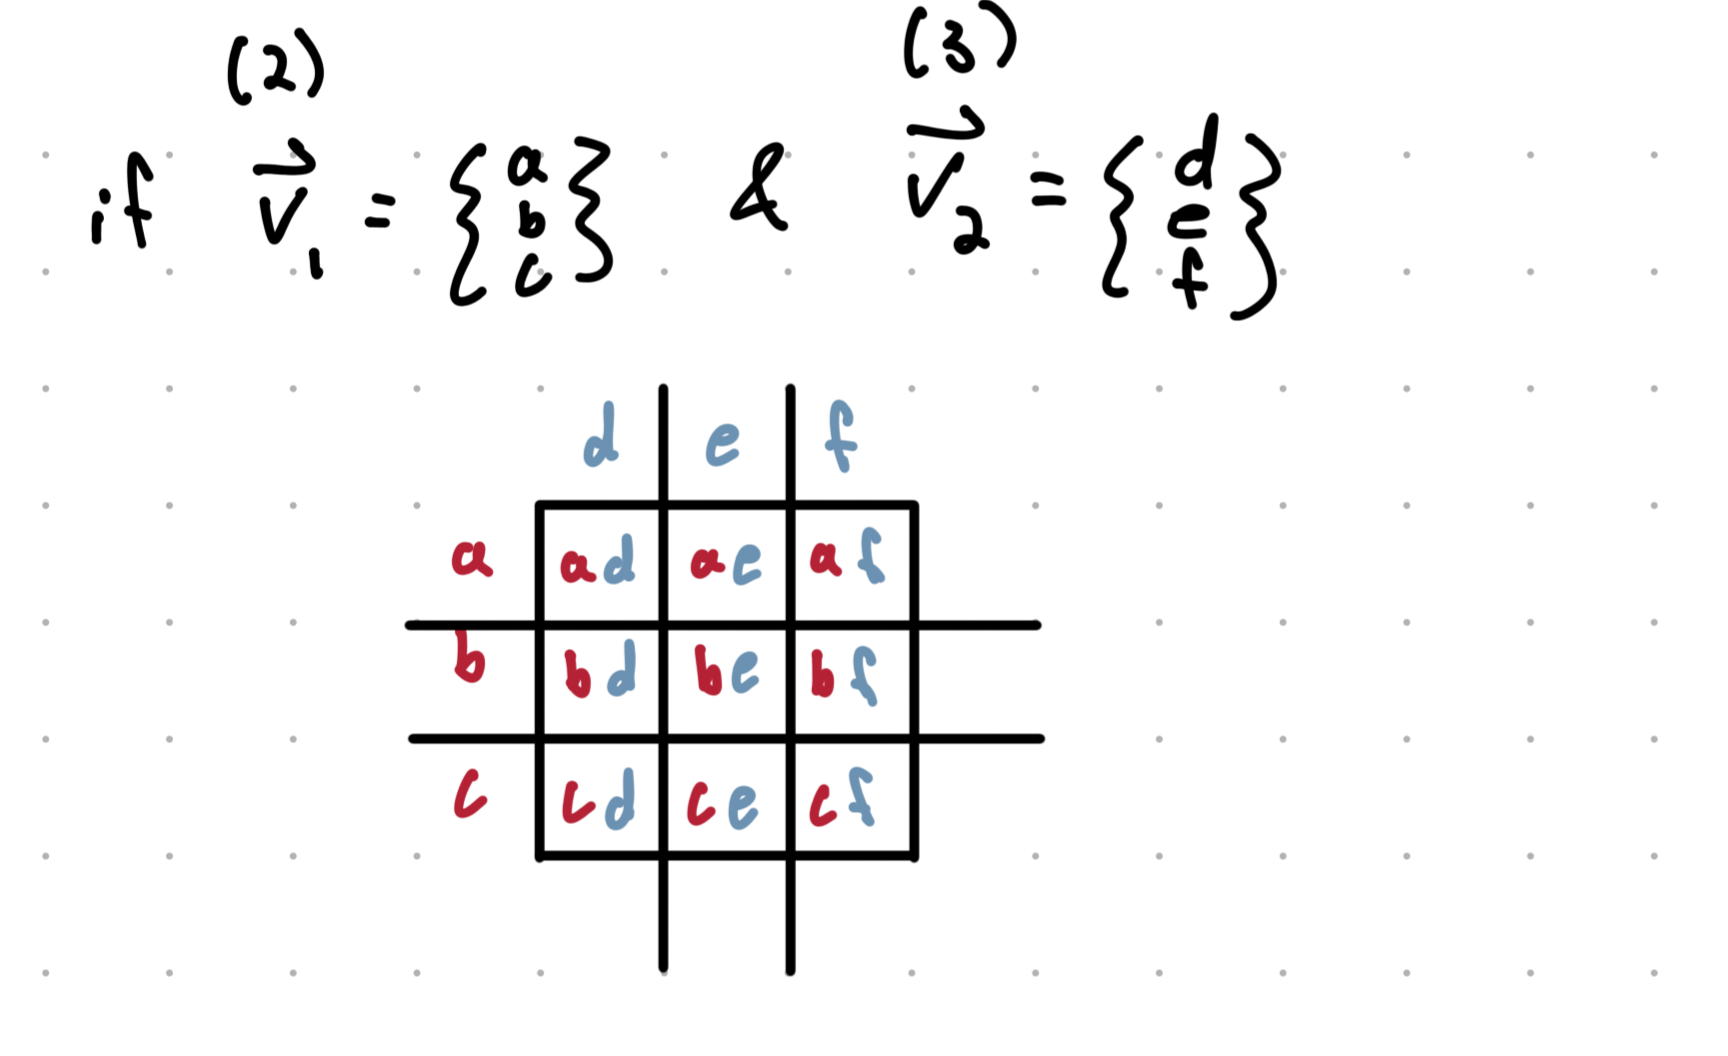 (2) (3)
if v⃗₁ = { a b c } & v⃗₂ = { d e f }
d e f
a ad ae af
b bd be bf
c cd ce cf